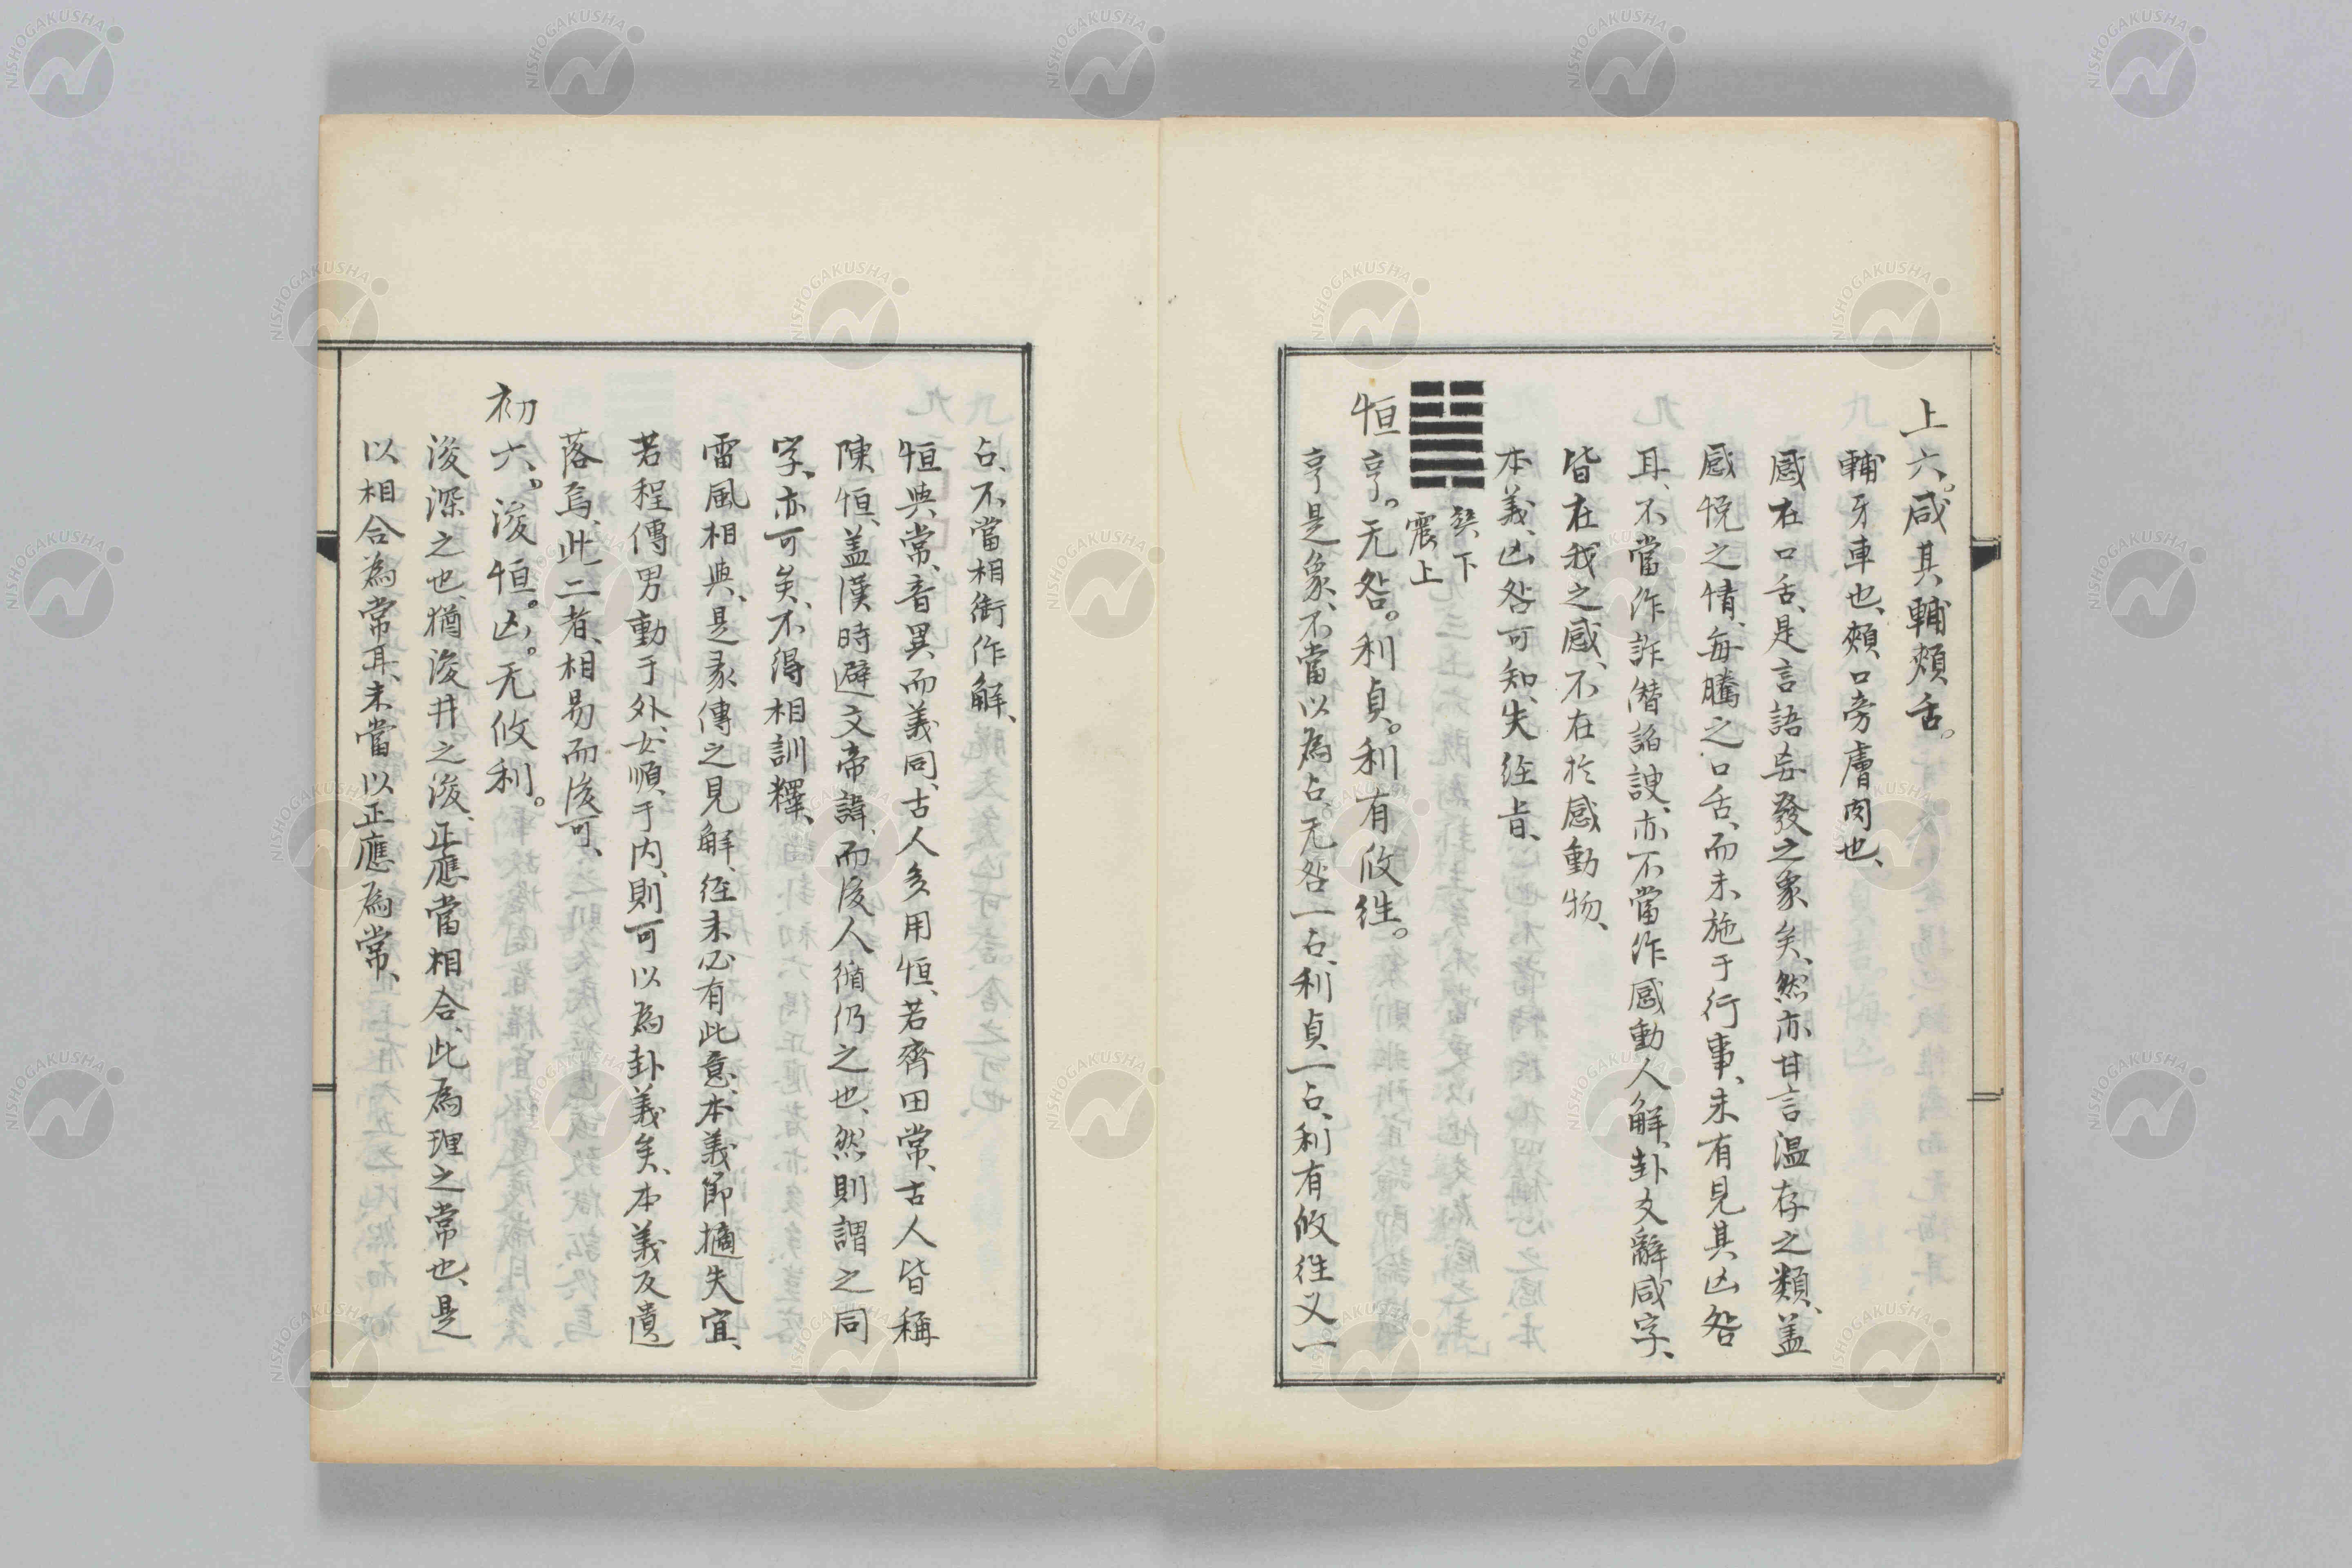 上六。咸其輔頰舌。
輔牙車也、頰口旁膚肉也、
感在口舌、是言語妄發之象矣、然亦甘言温存之類、盖
感悦之情、每騰之口舌、而未施于行事、未有見其凶咎
耳、不當作詐僭諂諛、亦不當作感動人解、卦爻辭咸字、
皆在我之感、不在於感動物、
本義、凶咎可知、失経旨、
巽下
震上
恒亨。无咎。利貞。利有攸往。
亨是象、不當以為占。无咎一占、利貞一占、利有攸往又一
占、不當相銜作解、
恒與常、音異而義同、古人多用恒、若齊田常、古人皆稱
陳恒、盖漢時避文帝諱、而後人循仍之也、然則謂之同
字、亦可矣、不得相訓釋、
雷風相與、是彖傳之見解、経未必有此意、本義節擿失宜、
若程傳男動于外、女順于内、則可以為卦義矣、本義反遺
落焉、此二者、相易而後可、
初六。浚恒。凶。无攸利。
浚深之也、猶浚井之浚、正應當相合、此為理之常也、是
以相合為常耳、未當以正應為常、
NISHOGAKUSHA